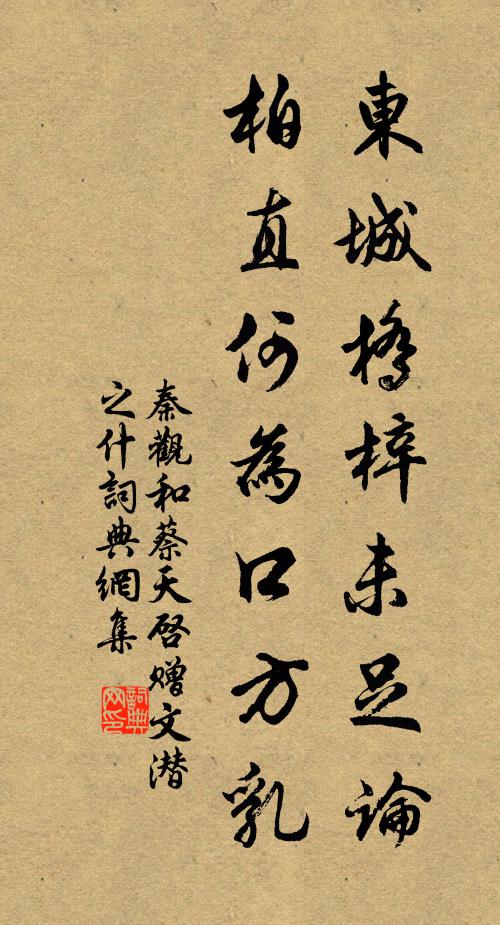 東城橋梓未足論
柏直何為口方乳
秦觀和蔡天啓贈文潛
之什詞典網集
詞典网印